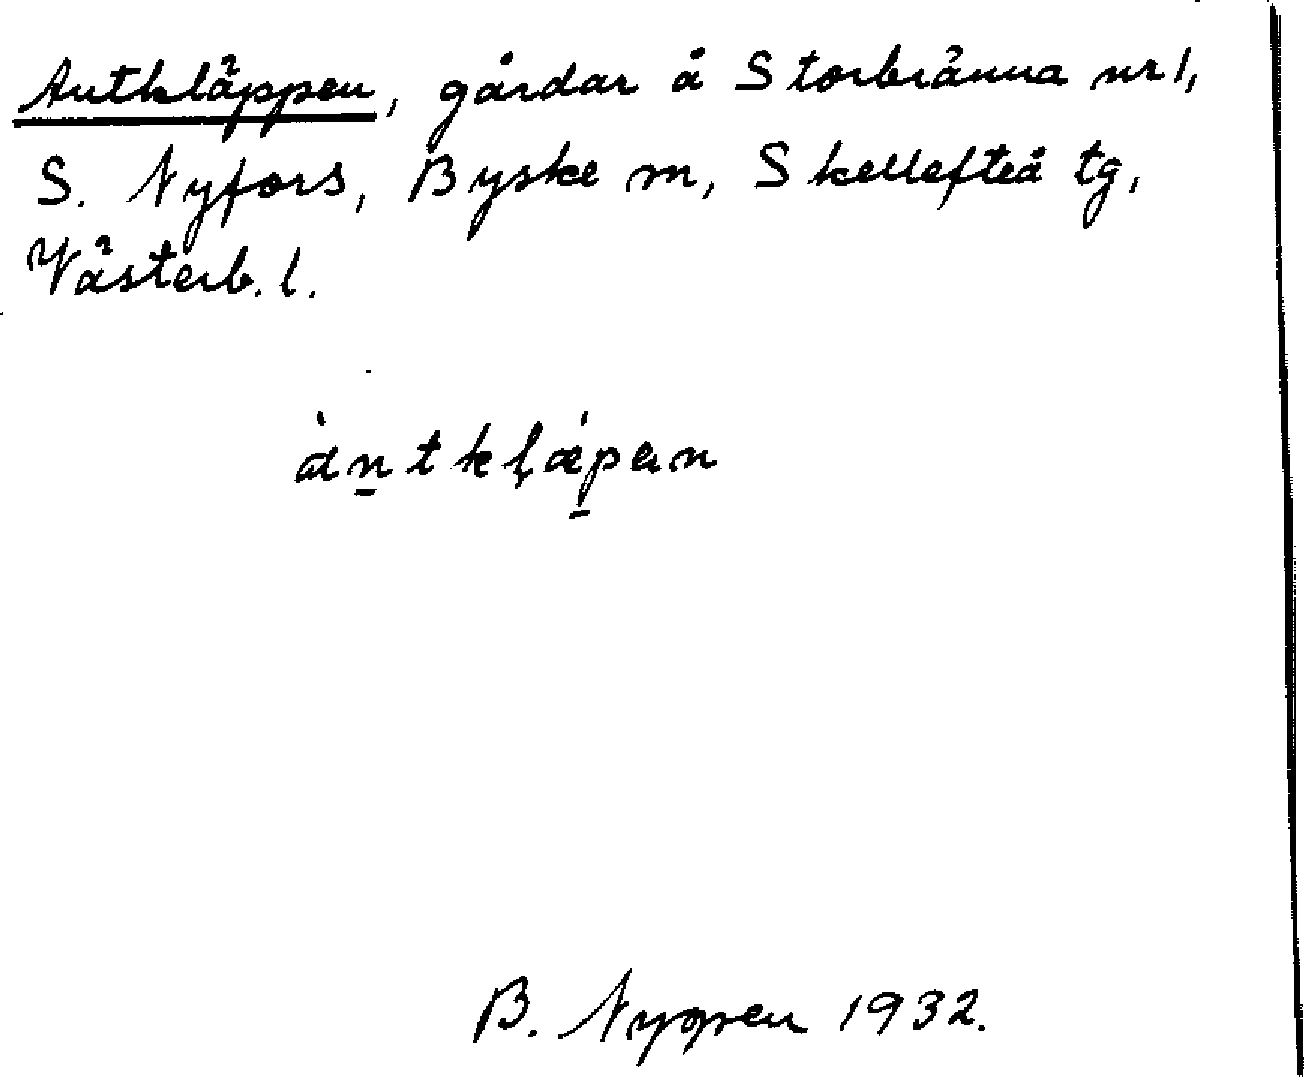 Antkläppen, gårdar å Storbränna nr 1,
S. Nyfors, Byske sn, Skellefteå tg,
Västerb. l.
àn̠tkḷǽp̠ən
B. 1932.